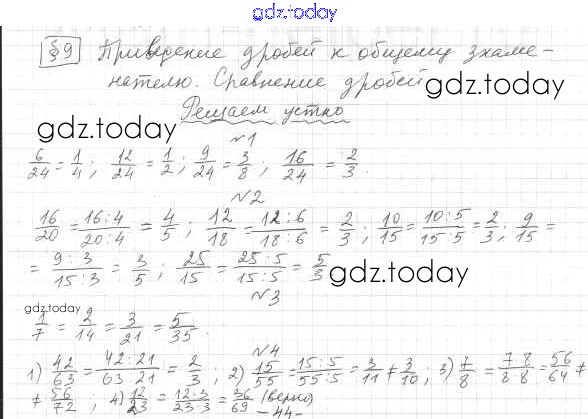 gdz.today
§9 Приведение дробей к общему знаме-
нателю. Сравнение дробей
gdz.today
Решаем устно
gdz.today
№1
6/24 = 1/4; 12/24 = 1/2; 9/24 = 3/8; 16/24 = 2/3.
№2
16/20 = 16:4/20:4 = 4/5; 12/18 = 12:6/18:6 = 2/3; 10/15 = 10:5/15:5 = 2/3; 9/15 =
= 9:3/15:3 = 3/5; 25/15 = 25:5/15:5 = 5/3
gdz.today
№3
gdz.today
1/7 = 2/14 = 3/21 = 5/35.
№4
1) 42/63 = 42:21/63:21 = 2/3; 2) 15/55 = 15:5/55:5 = 3/11 ≠ 3/10; 3) 7/8 = 7·8/8·8 = 56/64 ≠
≠ 56/72; 4) 12/23 = 12·3/23·3 = 36/69 (верно)
-44-